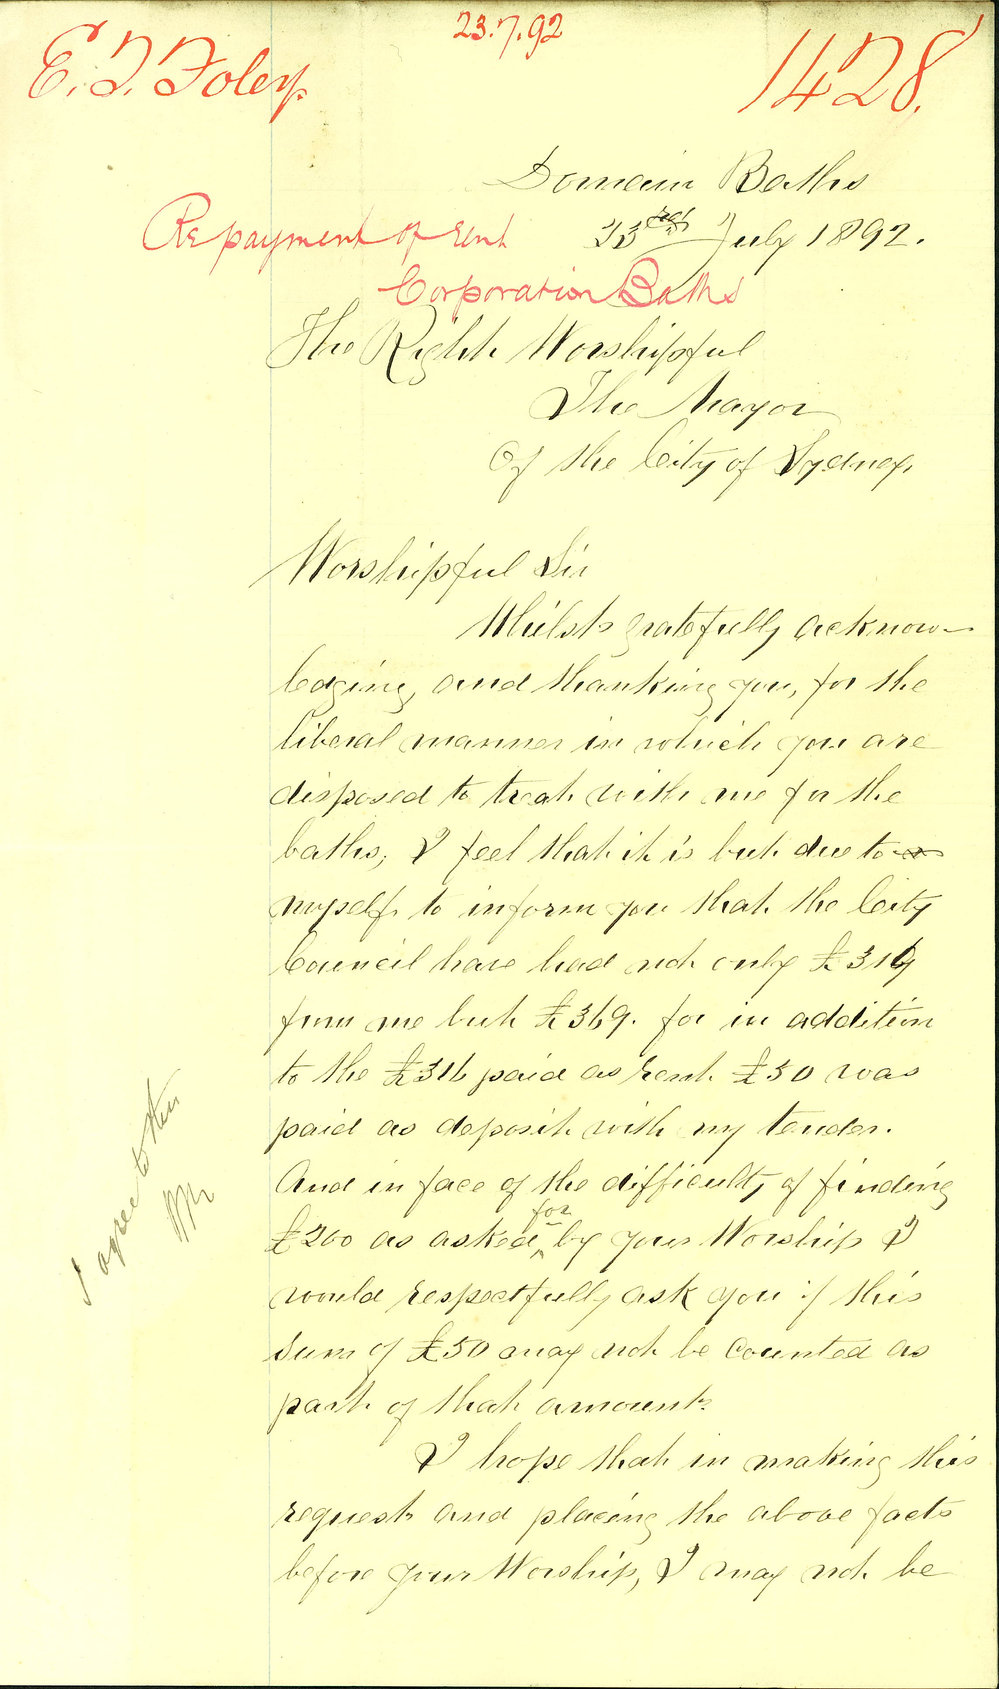 23.7.92
E. T. Foley.
1428.
Domain Baths
Repayment of Rent
23rd July 1892.
Corporation Baths
The Right Worshipful
The Mayor
Of the City of Sydney,
Worshipful Sir
Whilst gratefully acknow-
ledging, and thanking you, for the
liberal manner in which you are
disposed to treat with me for the
baths, I feel that it is but due to
myself to inform you that the City
Council have had not only £319
from me but £369. for in addition
to the £316 paid as rent £50 was
paid as deposit with my tender.
And in face of the difficulty of finding
for
£200 as asked by your Worship I
would respectfully ask you if this
sum of £50 may not be counted as
part of that amount.
I hope that in making this
request and placing the above facts
before your Worship, I may not be
I agree to this